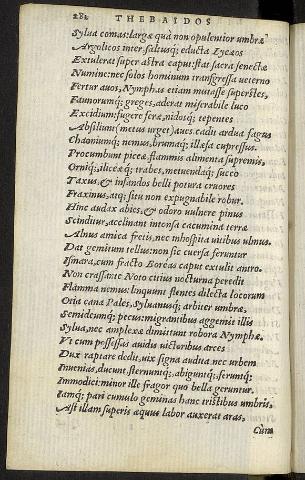 282 THEBAIDOS
Sylua comas: largæ quà non opulentior umbræ
Argolicos inter saltusq́; educta Lycæos
Extulerat super astra caput: stat sacra senectæ
Numine: nec solos hominum transgressa ueterno
Fertur auos, Nymphas etiam mutasse superstes,
Faunorumq́; greges, aderat miserabile luco
Excidium: fugere feræ, nidosq́; tepentes
Absiliunt (metus urget) aues. cadit ardua fagus
Chaoniumq́; nemus, brumæq́; illæsa cupressus.
Procumbunt piceæ. flammis alimenta supremis,
Orniq́; iliceæq́; trabes, metuendaq́; succo
Taxus, & infandos belli potura cruores
Fraxinus, atq́; situ non expugnabile robur.
Hinc audax abies, & odoro uulnere pinus
Scinditur, acclinant intonsa cacumina terræ
Alnus amica fretis, nec inhospita uitibus ulmus.
Dat gemitum tellus: non sic euersa feruntur
Ismara, cum fracto Boreas caput extulit antro.
Non grassante Noto citius nocturna peredit
Flamma nemus: linquunt flentes dilecta locorum
Otia cana Pales, Syluanusq́; arbiter umbræ,
Semideumq́; pecus: migrantibus aggemit illis
Sylua, nec amplexæ dimittunt robora Nymphæ.
Vt cum possessas auidis uictoribus arces
Dux raptare dedit, uix signa audita nec urbem
Inuenias, ducunt sternuntq́; abiguntq́; feruntq́;
Immodici: minor ille fragor quo bella geruntur.
Iamq́; pari cumulo geminas hanc tristibus umbris,
Ast illam superis æquus labor auxerat aras,
Cùm